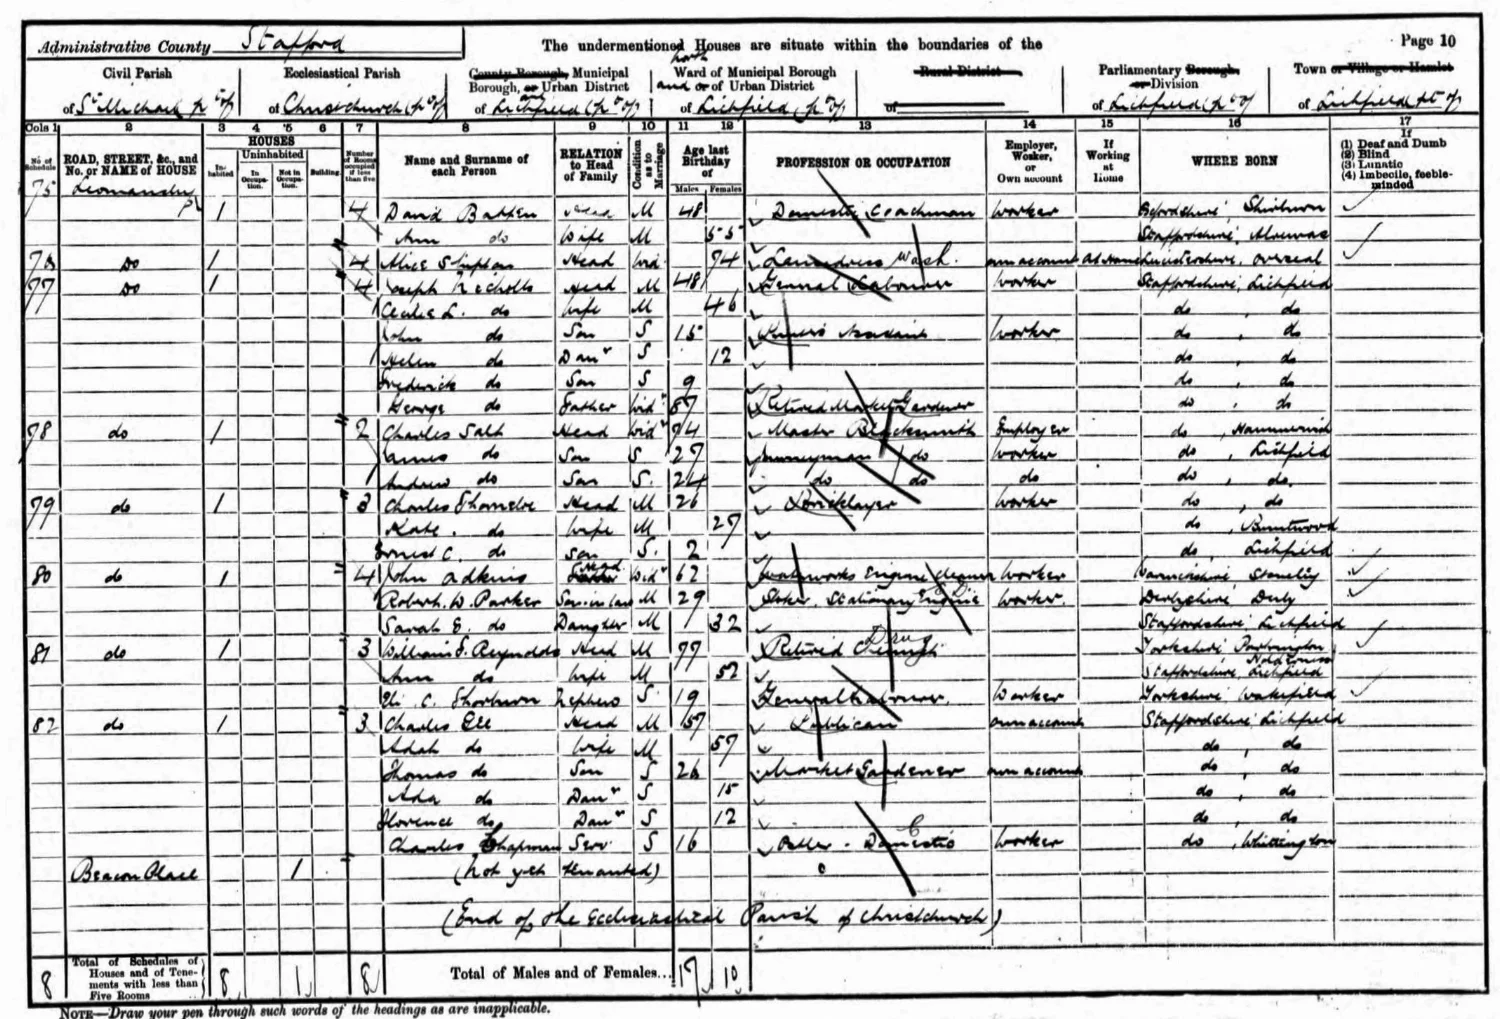 Administrative County Stafford
The undermentioned Houses are situate within the boundaries of the
Page 10
Civil Parish
of St Michael pt of
Ecclesiastical Parish
of Christchurch (pt of)
County Borough, Municipal
Borough, or Urban District
of Lichfield (pt of)
North
Ward of Municipal Borough
and or of Urban District
of Lichfield (pt of)
Rural District
of
Parliamentary Borough
or Division
of Lichfield (pt of)
Town or Village or Hamlet
of Lichfield pt of
Cols 1 2 3 4 5 6 7 8 9 10 11 12 13 14 15 16 17
No of Schedule
ROAD, STREET, &c., and
No. or NAME of HOUSE
HOUSES
In-habited
Uninhabited
In Occupa-tion.
Not in Occupa-tion.
Building.
Number of Rooms occupied if less than five
Name and Surname of
each Person
RELATION
to Head
of Family
Condition as to Marriage
Age last
Birthday
of
Males Females
PROFESSION OR OCCUPATION
Employer,
Worker,
or
Own account
If
Working
at
Home
WHERE BORN
If
(1) Deaf and Dumb
(2) Blind
(3) Lunatic
(4) Imbecile, feeble-minded
75 1 4 David Head M 48 Domestic Coachman Worker
Ann do Wife M 55 Staffordshire, Alrewas
76 Do 1 4 Alice Head Wid. 74 Laundress Wash. own account At Home Leicestershire, Overseal
77 Do 1 4 Joseph Nicholls Head M 48 General Labourer Worker Staffordshire, Lichfield
Cecilia L. do Wife M 46 do, do
John do Son S 15 Assistant Worker do do
Helen do Daur S 12 do do
Frederick do Son S 9 do, do
George do Father Widr 87 Retired Market Gardener do, do
78 do 1 2 Charles Salt Head Widr 74 Master Blacksmith Employer do, Hammerwich
James do Son S 27 Journeyman do Worker do, Lichfield
Andrew do Son S. 24 do do do do, do.
79 do 1 3 Charles Head M 26 Bricklayer Worker do, do
Kate. do Wife M 27 do, Burntwood
Ernest C. do Son S. 2 do, Lichfield
80 do 1 4 John Adkins Head Widr 62 Waterworks Engine Cleaner Worker Warwickshire,
Robert. W. Parker Son-in-law M 29 Stoker. Stationary Engine Worker. Derbyshire Derby
Sarah E. do Daughter M 32 Staffordshire Lichfield
81 do 1 3 William S. Reynolds Head M 77 Retired Druggist Yorkshire
Ann do Wife M 52 Staffordshire, Lichfield
Eli C. Nephew S 19 General Labourer. Worker Yorkshire Wakefield
82 do 1 3 Charles Ell Head M 57 Publican own account Staffordshire Lichfield
Adah do Wife M 57 do, do
Thomas do Son S 26 Market Gardener own account do, do
Ada do Daur S 15 do, do
Florence do Daur S 12 do, do
Charles Chapman Serv. S 16 Domestic Worker do, Whittington
Beacon Place 1 (Not yet tenanted)
(End of the Ecclesiastical Parish of Christchurch)
8 Total of Schedules of
Houses and of Tene-
ments with less than
Five Rooms
8 1 8 Total of Males and of Females... 17 10
NOTE—Draw your pen through such words of the headings as are inapplicable.